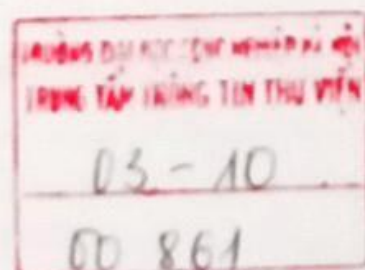 TRƯỜNG ĐẠI HỌC CÔNG NGHIỆP HÀ NỘI
TRUNG TÂM THÔNG TIN THƯ VIỆN
03 - 10
00 861